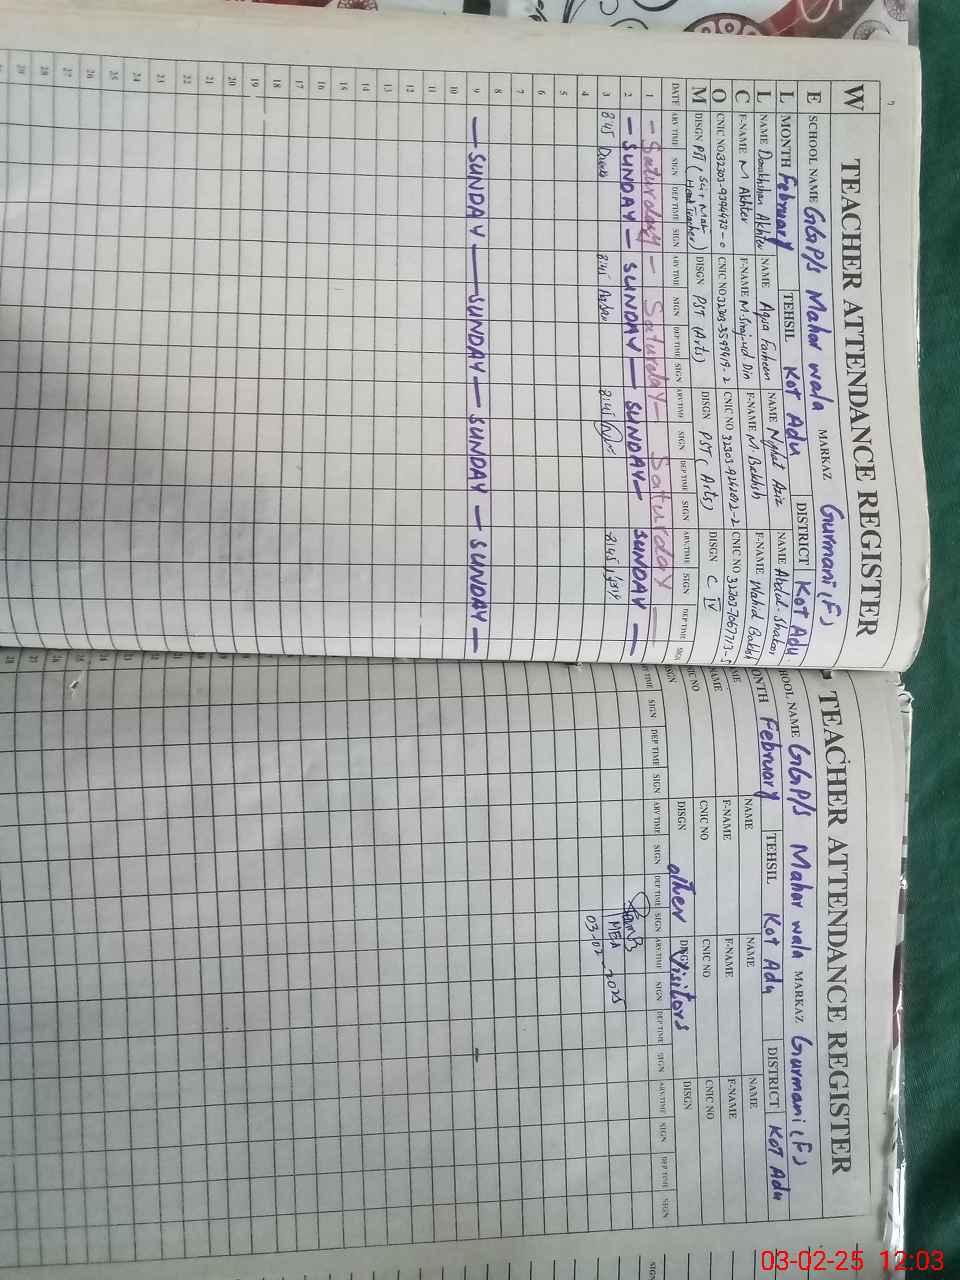 TEACHER ATTENDANCE REGISTER
WELLCOM
SCHOOL NAME GGP/s Mahar wala MARKAZ Gurmani (F)
MONTH February TEHSIL Kot Adu DISTRICT Kot Adu
NAME Akhter NAME Aqsa NAME Aziz NAME Abdul
F-NAME M Akhter F-NAME Din F-NAME M. Bakhsh F-NAME Wahid
CNIC NO CNIC NO CNIC NO CNIC NO
DISGN PST (Sci + Mat) (Head Teacher) DISGN PST (Arts) DISGN PST (Arts) DISGN C IV
DATE ARV TIME SIGN DEP TIME SIGN ARV TIME SIGN DEP TIME SIGN ARV TIME SIGN DEP TIME SIGN ARV TIME SIGN DEP TIME SIGN
1 - Saturday - Saturday - Saturday -
2 - SUNDAY - SUNDAY - SUNDAY - SUNDAY -
3 8:45 8:45 8:45 8:45
4
5
6
7
8
9 - SUNDAY - SUNDAY - SUNDAY - SUNDAY -
10
11
12
13
14
15
16
17
18
19
20
21
22
23
24
25
26
27
28
29
TEACHER ATTENDANCE REGISTER
SCHOOL NAME GGP/s Mahar wala MARKAZ Gurmani (F)
MONTH February TEHSIL Kot Adu DISTRICT Kot Adu
NAME NAME NAME
F-NAME F-NAME F-NAME
CNIC NO CNIC NO CNIC NO
DISGN DISGN DISGN
other Visitors
ARV TIME SIGN DEP TIME SIGN ARV TIME SIGN DEP TIME SIGN ARV TIME SIGN DEP TIME SIGN ARV TIME SIGN DEP TIME SIGN
MEA
03-02-2025
03-02-25 12:03